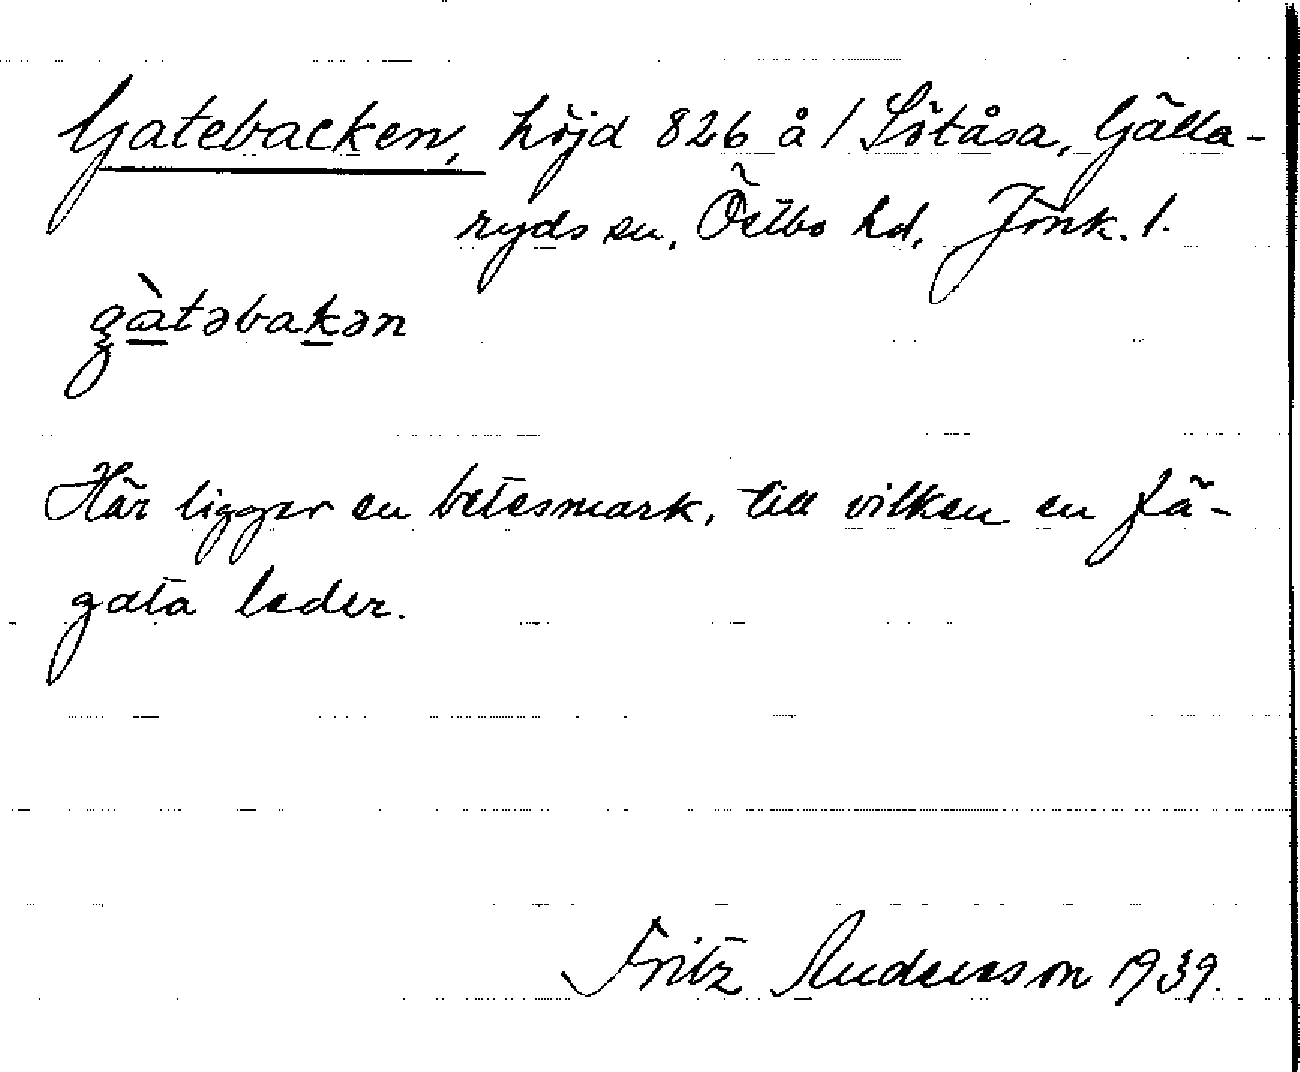 Gatebacken, höjd 826 å / Sötåsa, Gälla-
ryds sn, Östbo hd, Jönk. l.
gàtəbakən
Här ligger en betesmark, till vilken en fä-
gata leder.
Fritz Andersson 1939.